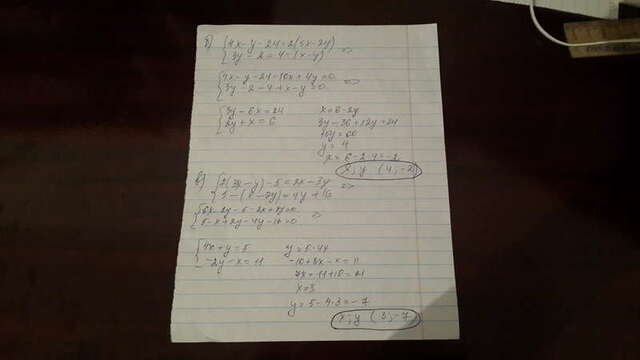 б) { 4x - y - 24 = 2(5x - 2y)
{ 3y - 2 = 4 - (x - y) =>
{ 4x - y - 24 - 10x + 4y = 0
{ 3y - 2 - 4 + x - y = 0 =>
{ 3y - 6x = 24
{ 2y + x = 6
x = 6 - 2y
3y - 36 + 12y = 24
15y = 60
y = 4
x = 6 - 2·4 = -2
x; y (4; -2)
в) { 2(3x - y) - 5 = 2x - 3y
{ 5 - (x - 2y) = 4y + 16 =>
{ 6x - 2y - 5 - 2x + 3y = 0
{ 5 - x + 2y - 4y - 16 = 0 =>
{ 4x + y = 5
{ -2y - x = 11
y = 5 - 4x
-10 + 8x - x = 11
7x = 11 + 10 = 21
x = 3
y = 5 - 4·3 = -7
x; y (3; -7